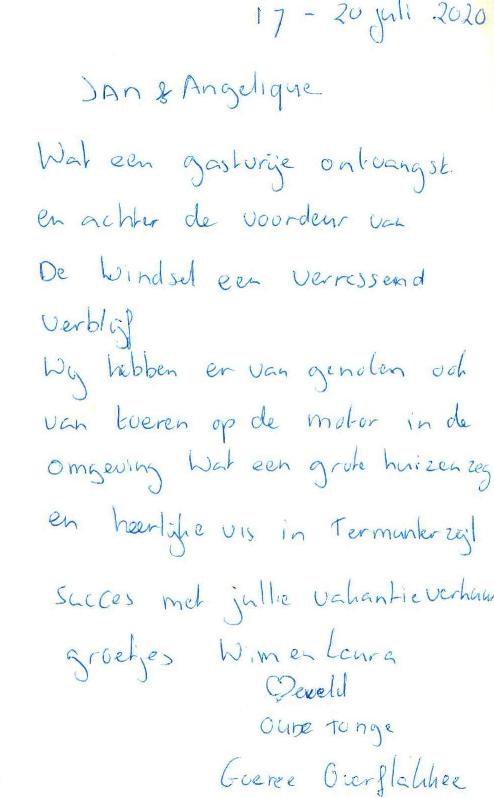 17 - 20 juli 2020
Jan & Angelique
Wat een gastvrije ontvangst.
en achter de voordeur van
De Windsel een verrassend
verblijf
Wij hebben er van genoten ook
van toeren op de motor in de
omgeving Wat een grote huizen zeg
en heerlijke vis in Termunterzijl
Succes met jullie vakantieverhuur
groetjes Wim en Laura
Oude Tonge
Goeree Overflakkee